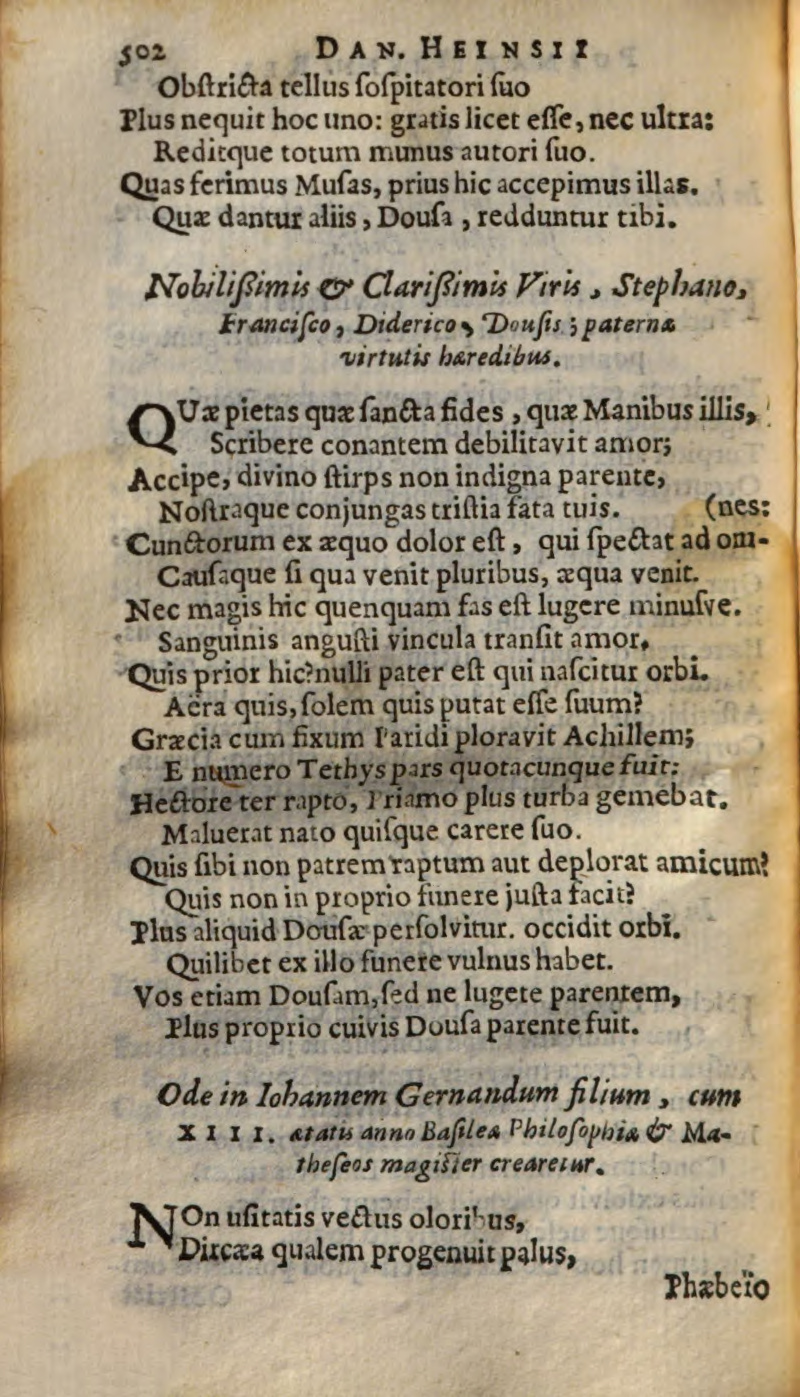 502 DAN. HEINSII
Obſtricta tellus ſoſpitatori ſuo
Plus nequit hoc uno: gratis licet eſſe, nec ultra:
Reditque totum munus autori ſuo.
Quas ferimus Muſas, prius hic accepimus illas.
Quæ dantur aliis, Douſa, redduntur tibi.
Nobiliſſimis & Clariſſimis Viris, Stephano,
Franciſco, Diderico, Douſis; paternæ
virtutis hæredibus.
QUæ pietas quæ ſancta fides, quæ Manibus illis,
Scribere conantem debilitavit amor;
Accipe, divino ſtirps non indigna parente,
Noſtraque conjungas triſtia fata tuis. (nes:
Cunctorum ex æquo dolor eſt, qui ſpectat ad om-
Cauſaque ſi qua venit pluribus, æqua venit.
Nec magis hic quenquam fas eſt lugere minuſve.
Sanguinis anguſti vincula tranſit amor,
Quis prior hic? nulli pater eſt qui naſcitur orbi.
Aëra quis, ſolem quis putat eſſe ſuum?
Græcia cum fixum Paridi ploravit Achillem;
E numero Tethys pars quotacunque fuit:
Hectore ter rapto, Priamo plus turba gemebat.
Maluerat nato quiſque carere ſuo.
Quis ſibi non patrem raptum aut deplorat amicum?
Quis non in proprio funere juſta facit?
Plus aliquid Douſæ perſolvitur. occidit orbi.
Quilibet ex illo funere vulnus habet.
Vos etiam Douſam, ſed ne lugete parentem,
Plus proprio cuivis Douſa parente fuit.
Ode in Iohannem Gernandum filium, cum
XIII. ætatis anno Baſileæ Philoſophiæ & Ma-
theſeos magiſter crearetur.
NOn uſitatis vectus oloribus,
Dircæa qualem progenuit palus,
Phæbeïo